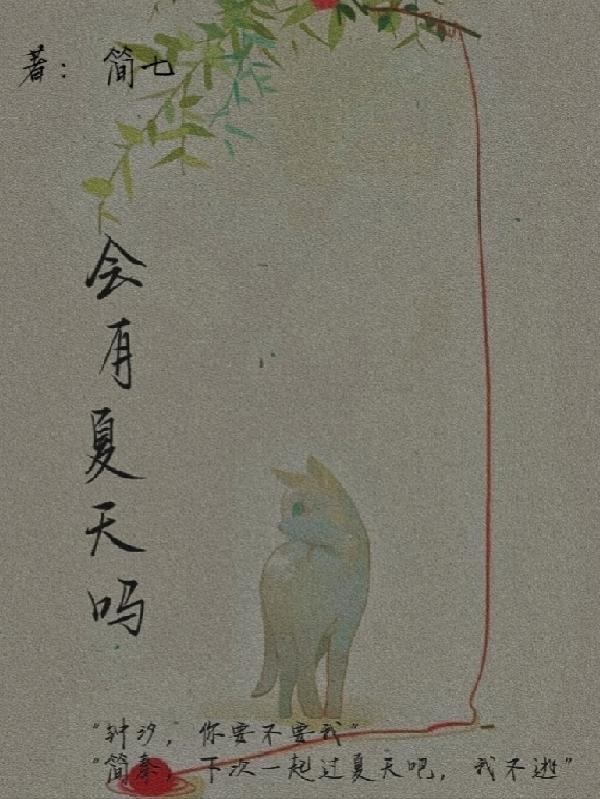 著：简七
会有夏天吗
“钟汐，你要不要我”
“简秦，下次一起过夏天吧，我不逃”